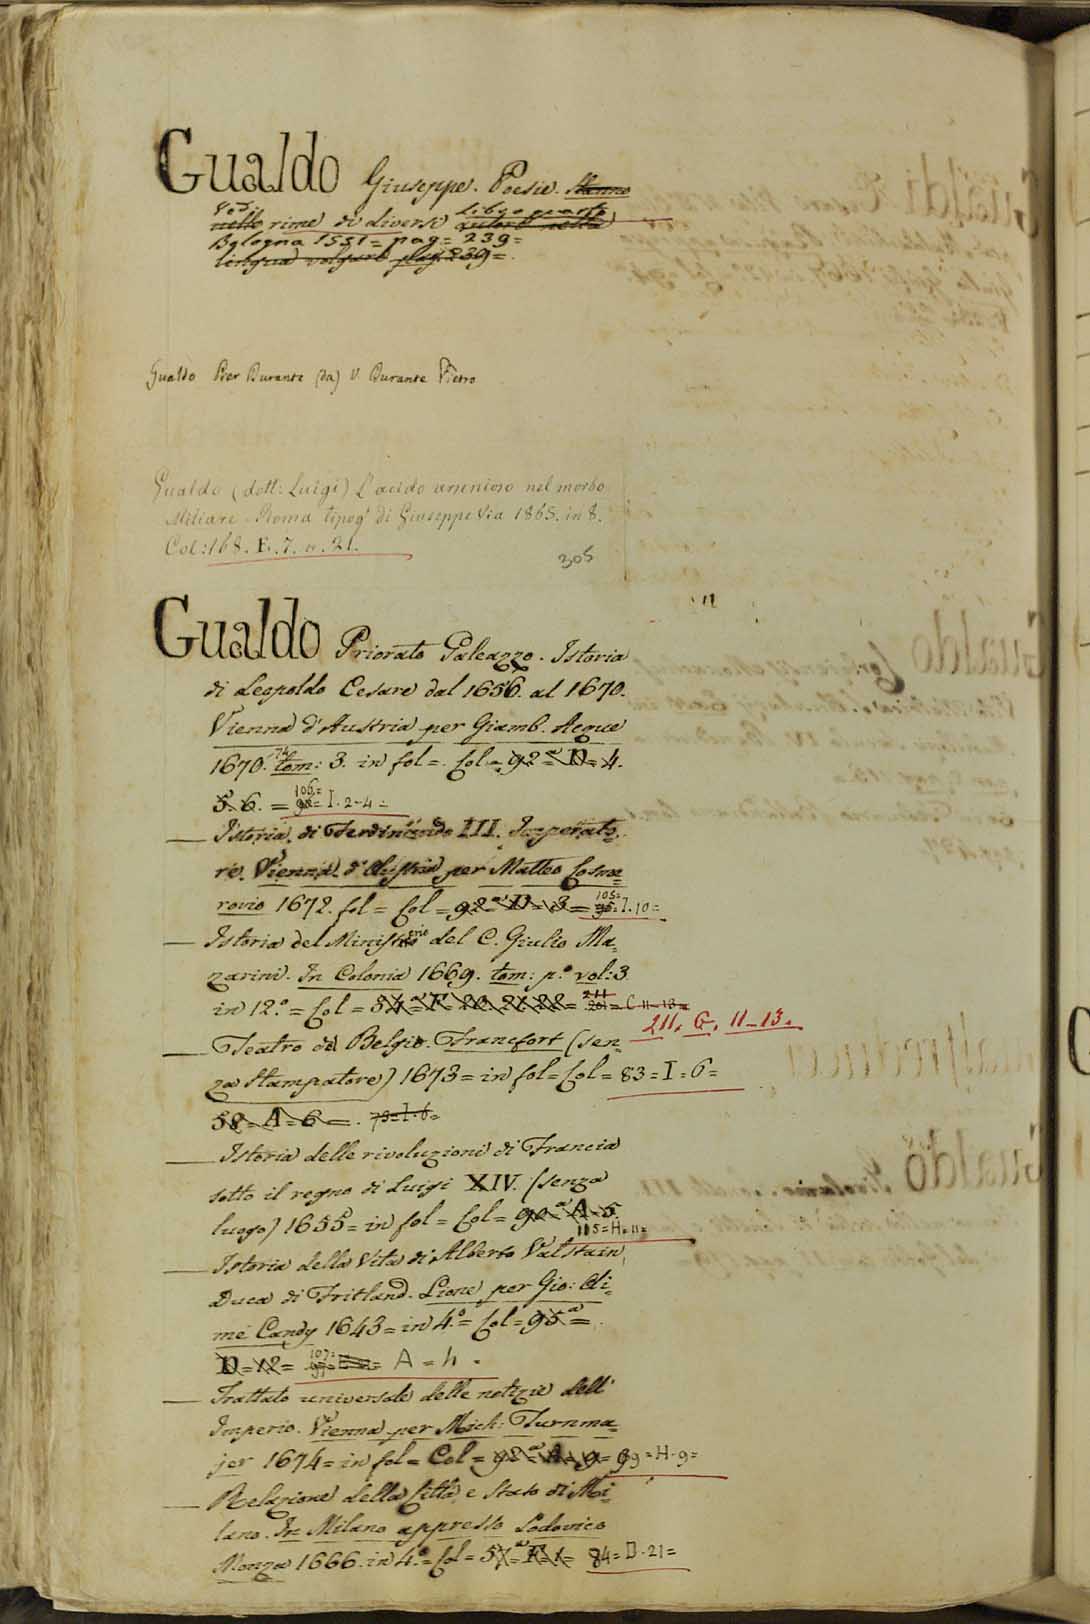 Gualdo Giuseppe. Poesie. Stanno
Vedi Libro quarto
nelle rime di diversi autori nella
Bologna 1551 = pag = 239 =
lingua volgare pag. 239 =
Gualdo Pier Durante (da) V. Durante Pietro
Gualdo (dott: Luigi) L'acido arsenioso nel morbo
Miliare. Roma tipogr di Giuseppe Via 1865. in 8.
Col: 168. E. 7. n. 21.
305
Gualdo Priorato Galeazzo. Istoria
di Leopoldo Cesare dal 1656. al 1670.
Vienna d'Austria per Giamb. Acque
1670. tom: 3. in fol =. Col = 92 = D = 4.
5. 6. = 106 = 98 = I. 2-4 =
— Istoria di Ferdinando III. Imperato=
re. Vienna d'Austria per Matteo Cosme=
rovio 1672. fol = Col = 92 = D = 3 = 105 = I. 10 =
— Istoria del Ministerio del C. Giulio Ma=
zarini. In Colonia 1669. tom: p.º vol: 3
in 12.º = Col = 54 = F = 20. 21. 22 = 211 = C 11-13 =
211. G. 11-13.
— Teatro del Belgio. Francfort (sen=
za Stampatore) 1673 = in fol = Col = 83 = I = 6 =
58 = A = 6 =. 79 = I. 6 =
— Istoria delle rivoluzioni di Francia
sotto il regno di Luigi XIV. (senza
luogo) 1655 = in fol = Col = 90 = A = 5.
105 = H = 11 =
— Istoria della Vita di Alberto Valstain,
Duca di Fritland. Lione per Gio: Ai=
mé Candy 1643 = in 4.º = Col = 95 =.
D = 12 = 107 = A = 4 =
— Trattato universale delle notizie dell'
Imperio. Vienna per Mich: Turnma=
jer 1674 = in fol = Col = 92 = A = 9 = 99 = H - 9 =
— Relazione della Città, e Stato di Mi=
lano. In Milano appresso Lodovico
Monza 1666. in 4.º = Col = 57 = F = 1 = 84 = D. 21 =